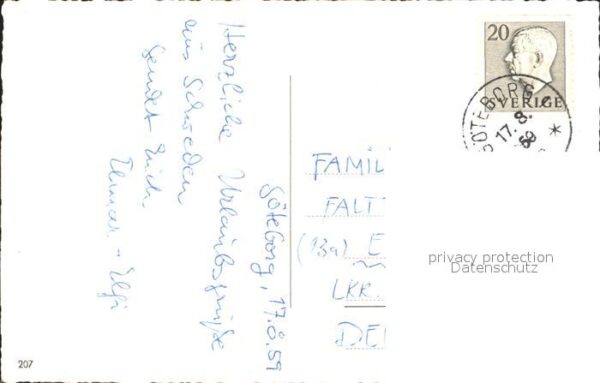 Göteborg, 17.8.59
Herzliche Urlaubsgrüße
aus Schweden
sendet Euch
Elfi
20
SVERIGE
GÖTEBORG
17. 8.
59
FAMILI
FALT
(13a) E
LKR.
DE
privacy protection
Datenschutz
207